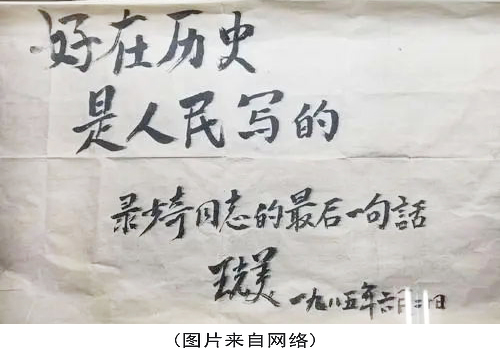 好在历史
是人民写的
录少奇同志的最后一句話
王光美 一九八五年六月二日
(图片来自网络)